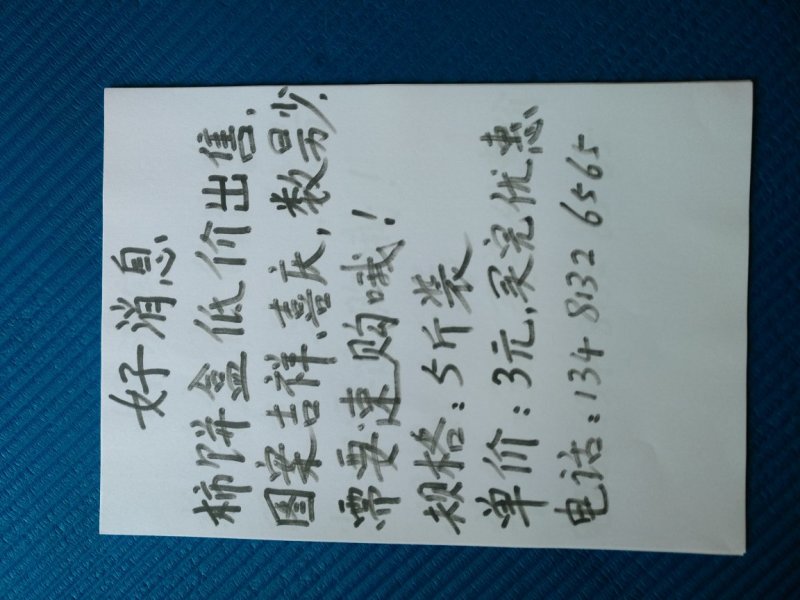 好消息
柿饼盒低价出售,
图案吉祥、喜庆,数量少,
需要速购哦!
规格:5斤装
单价:3元,买完优惠
电话:134 8132 6565